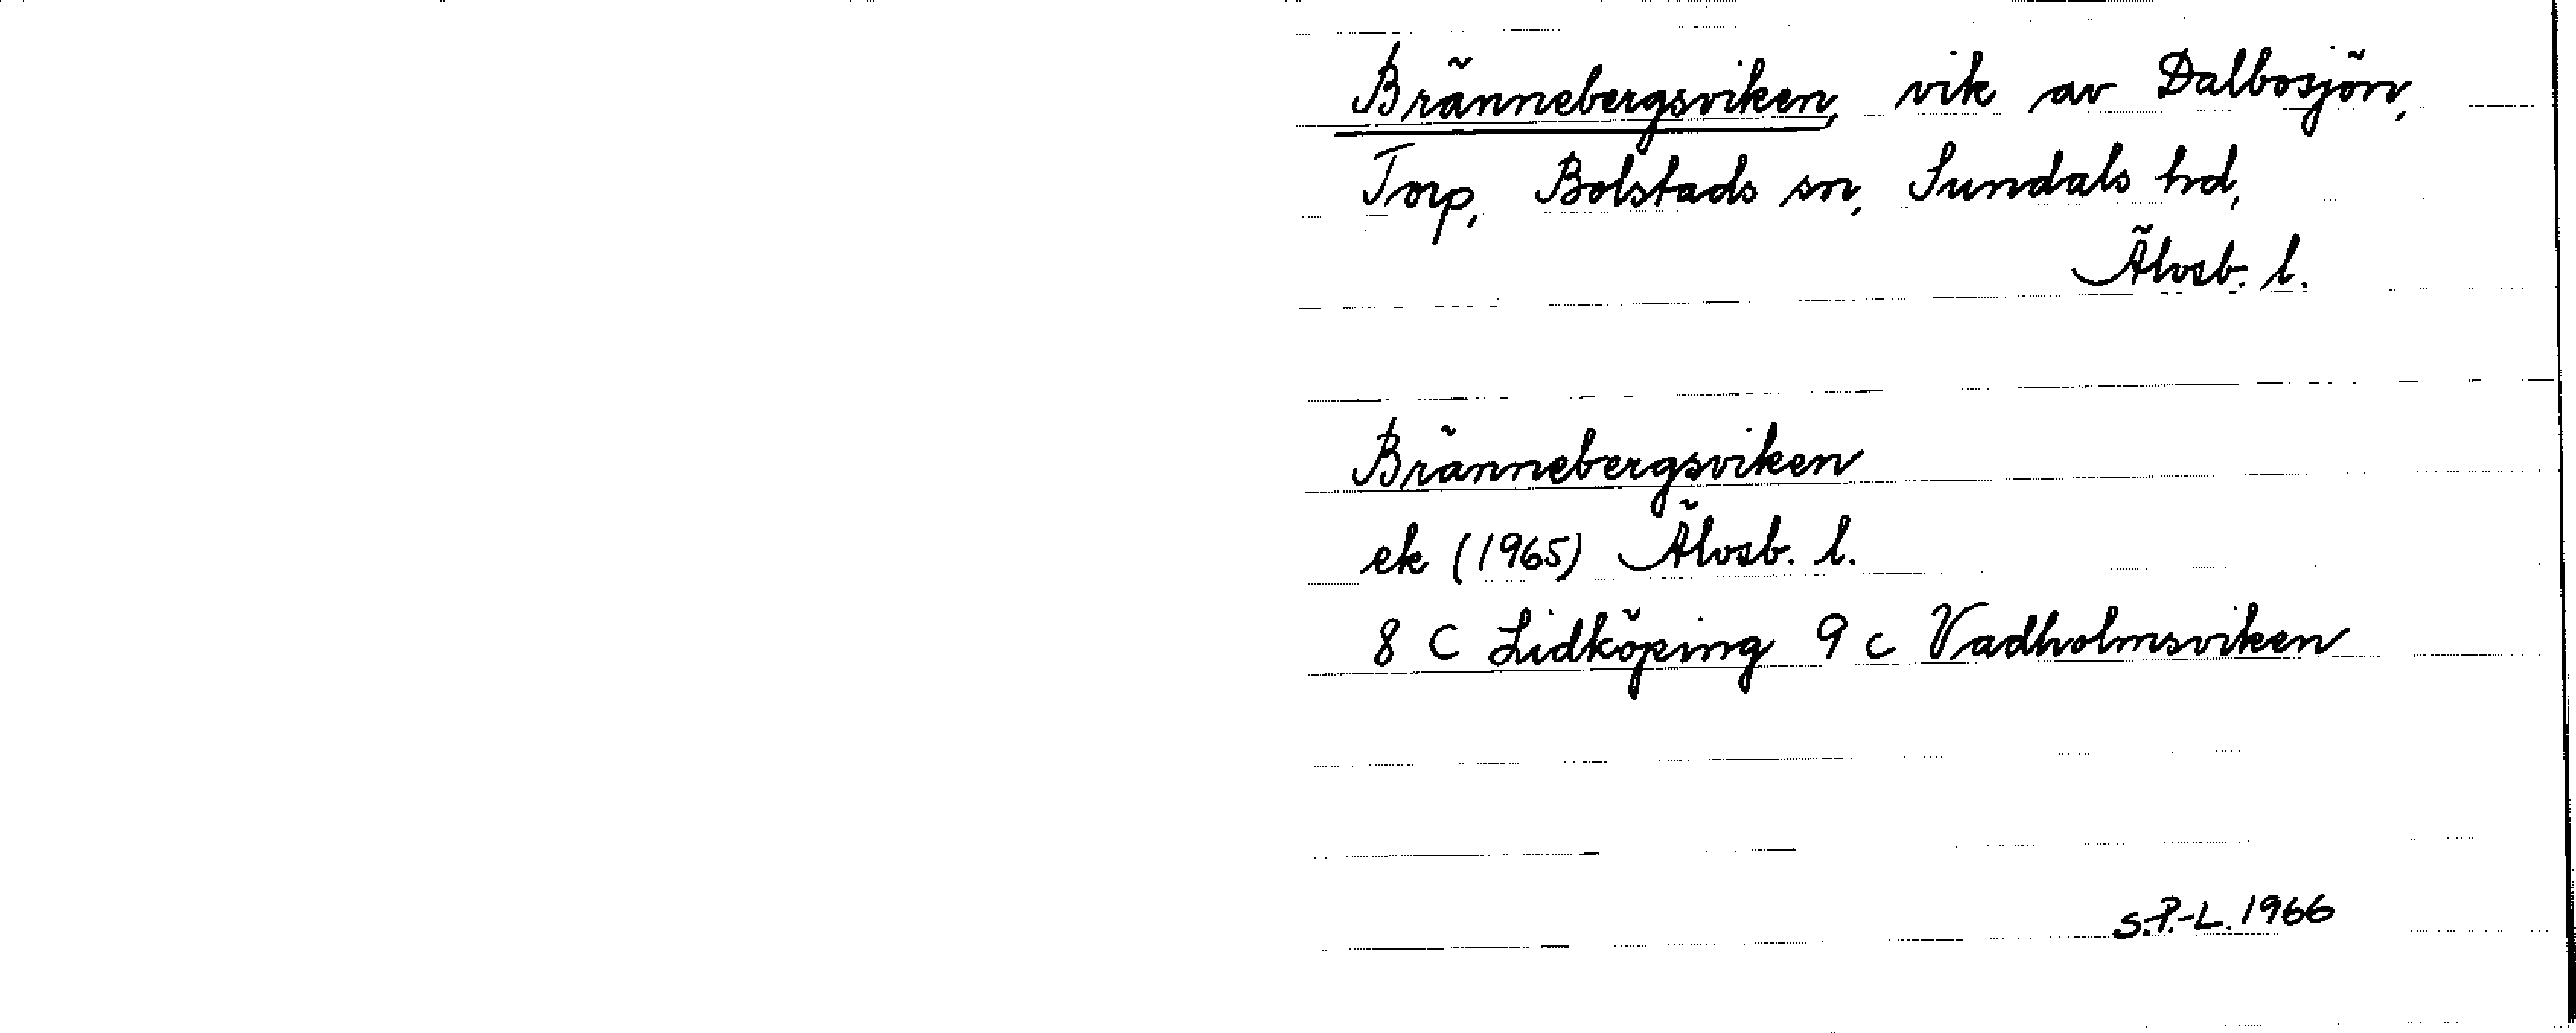 Brännebergsviken, vik av Dalbosjön,
Torp, Bolstads sn, Sundals hd,
Älvsb. l.
Brännebergsviken
ek (1965) Älvsb. l.
8 C Lidköping 9 c Vadholmsviken
S.P.-L. 1966